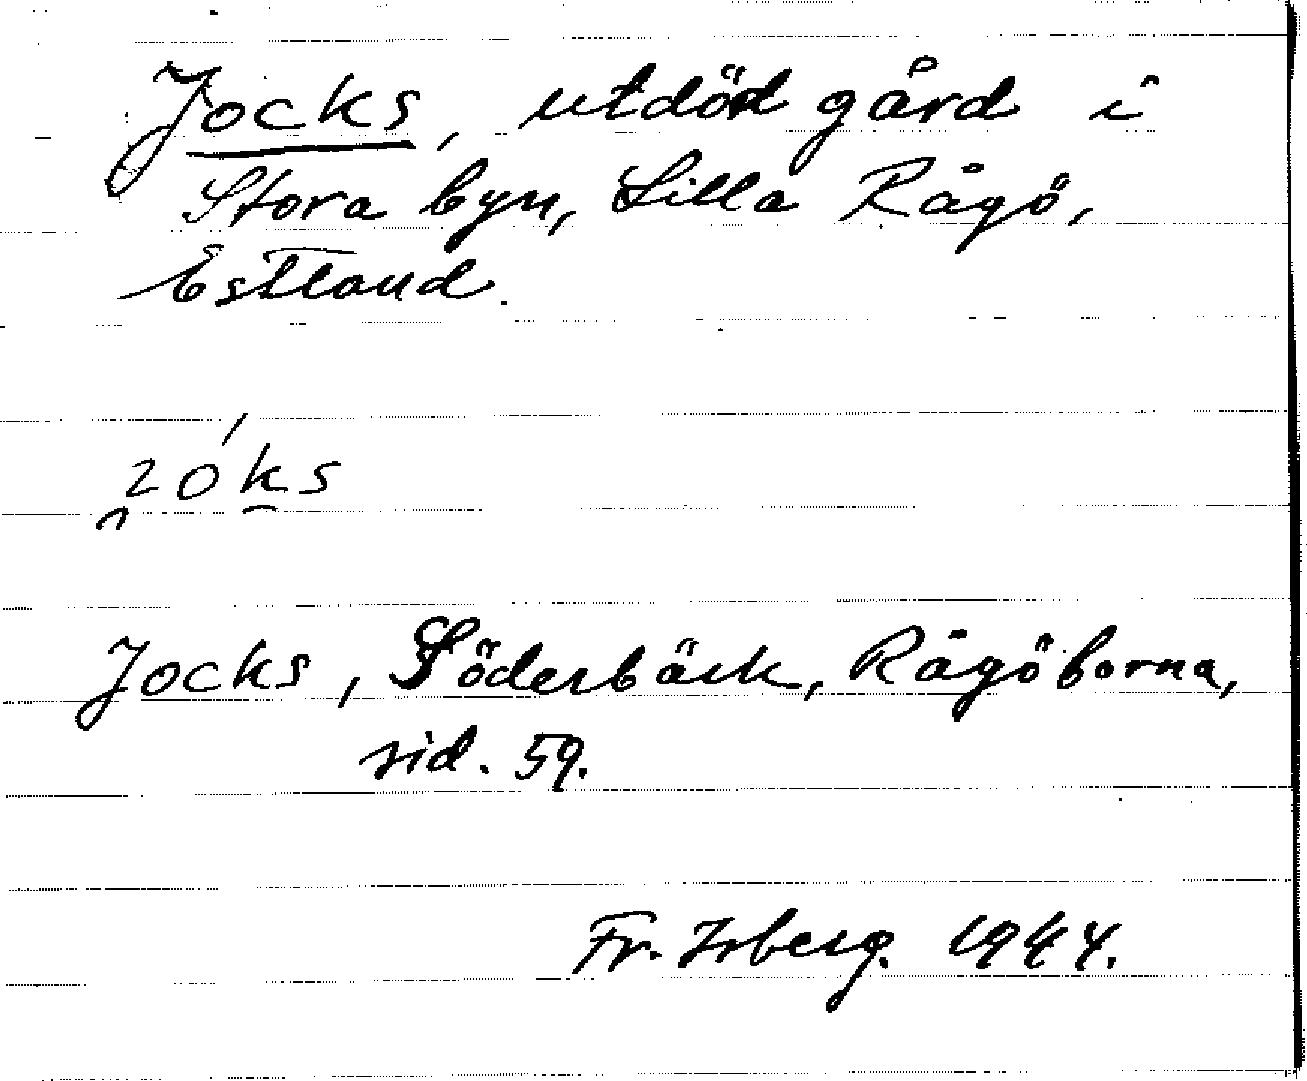 Jocks, utdöd gård i
Stora byn, Lilla Rågö,
Estland.
Jocks, Söderbäck, Rågöborna,
sid. 59.
Fr. Isberg. 1944.